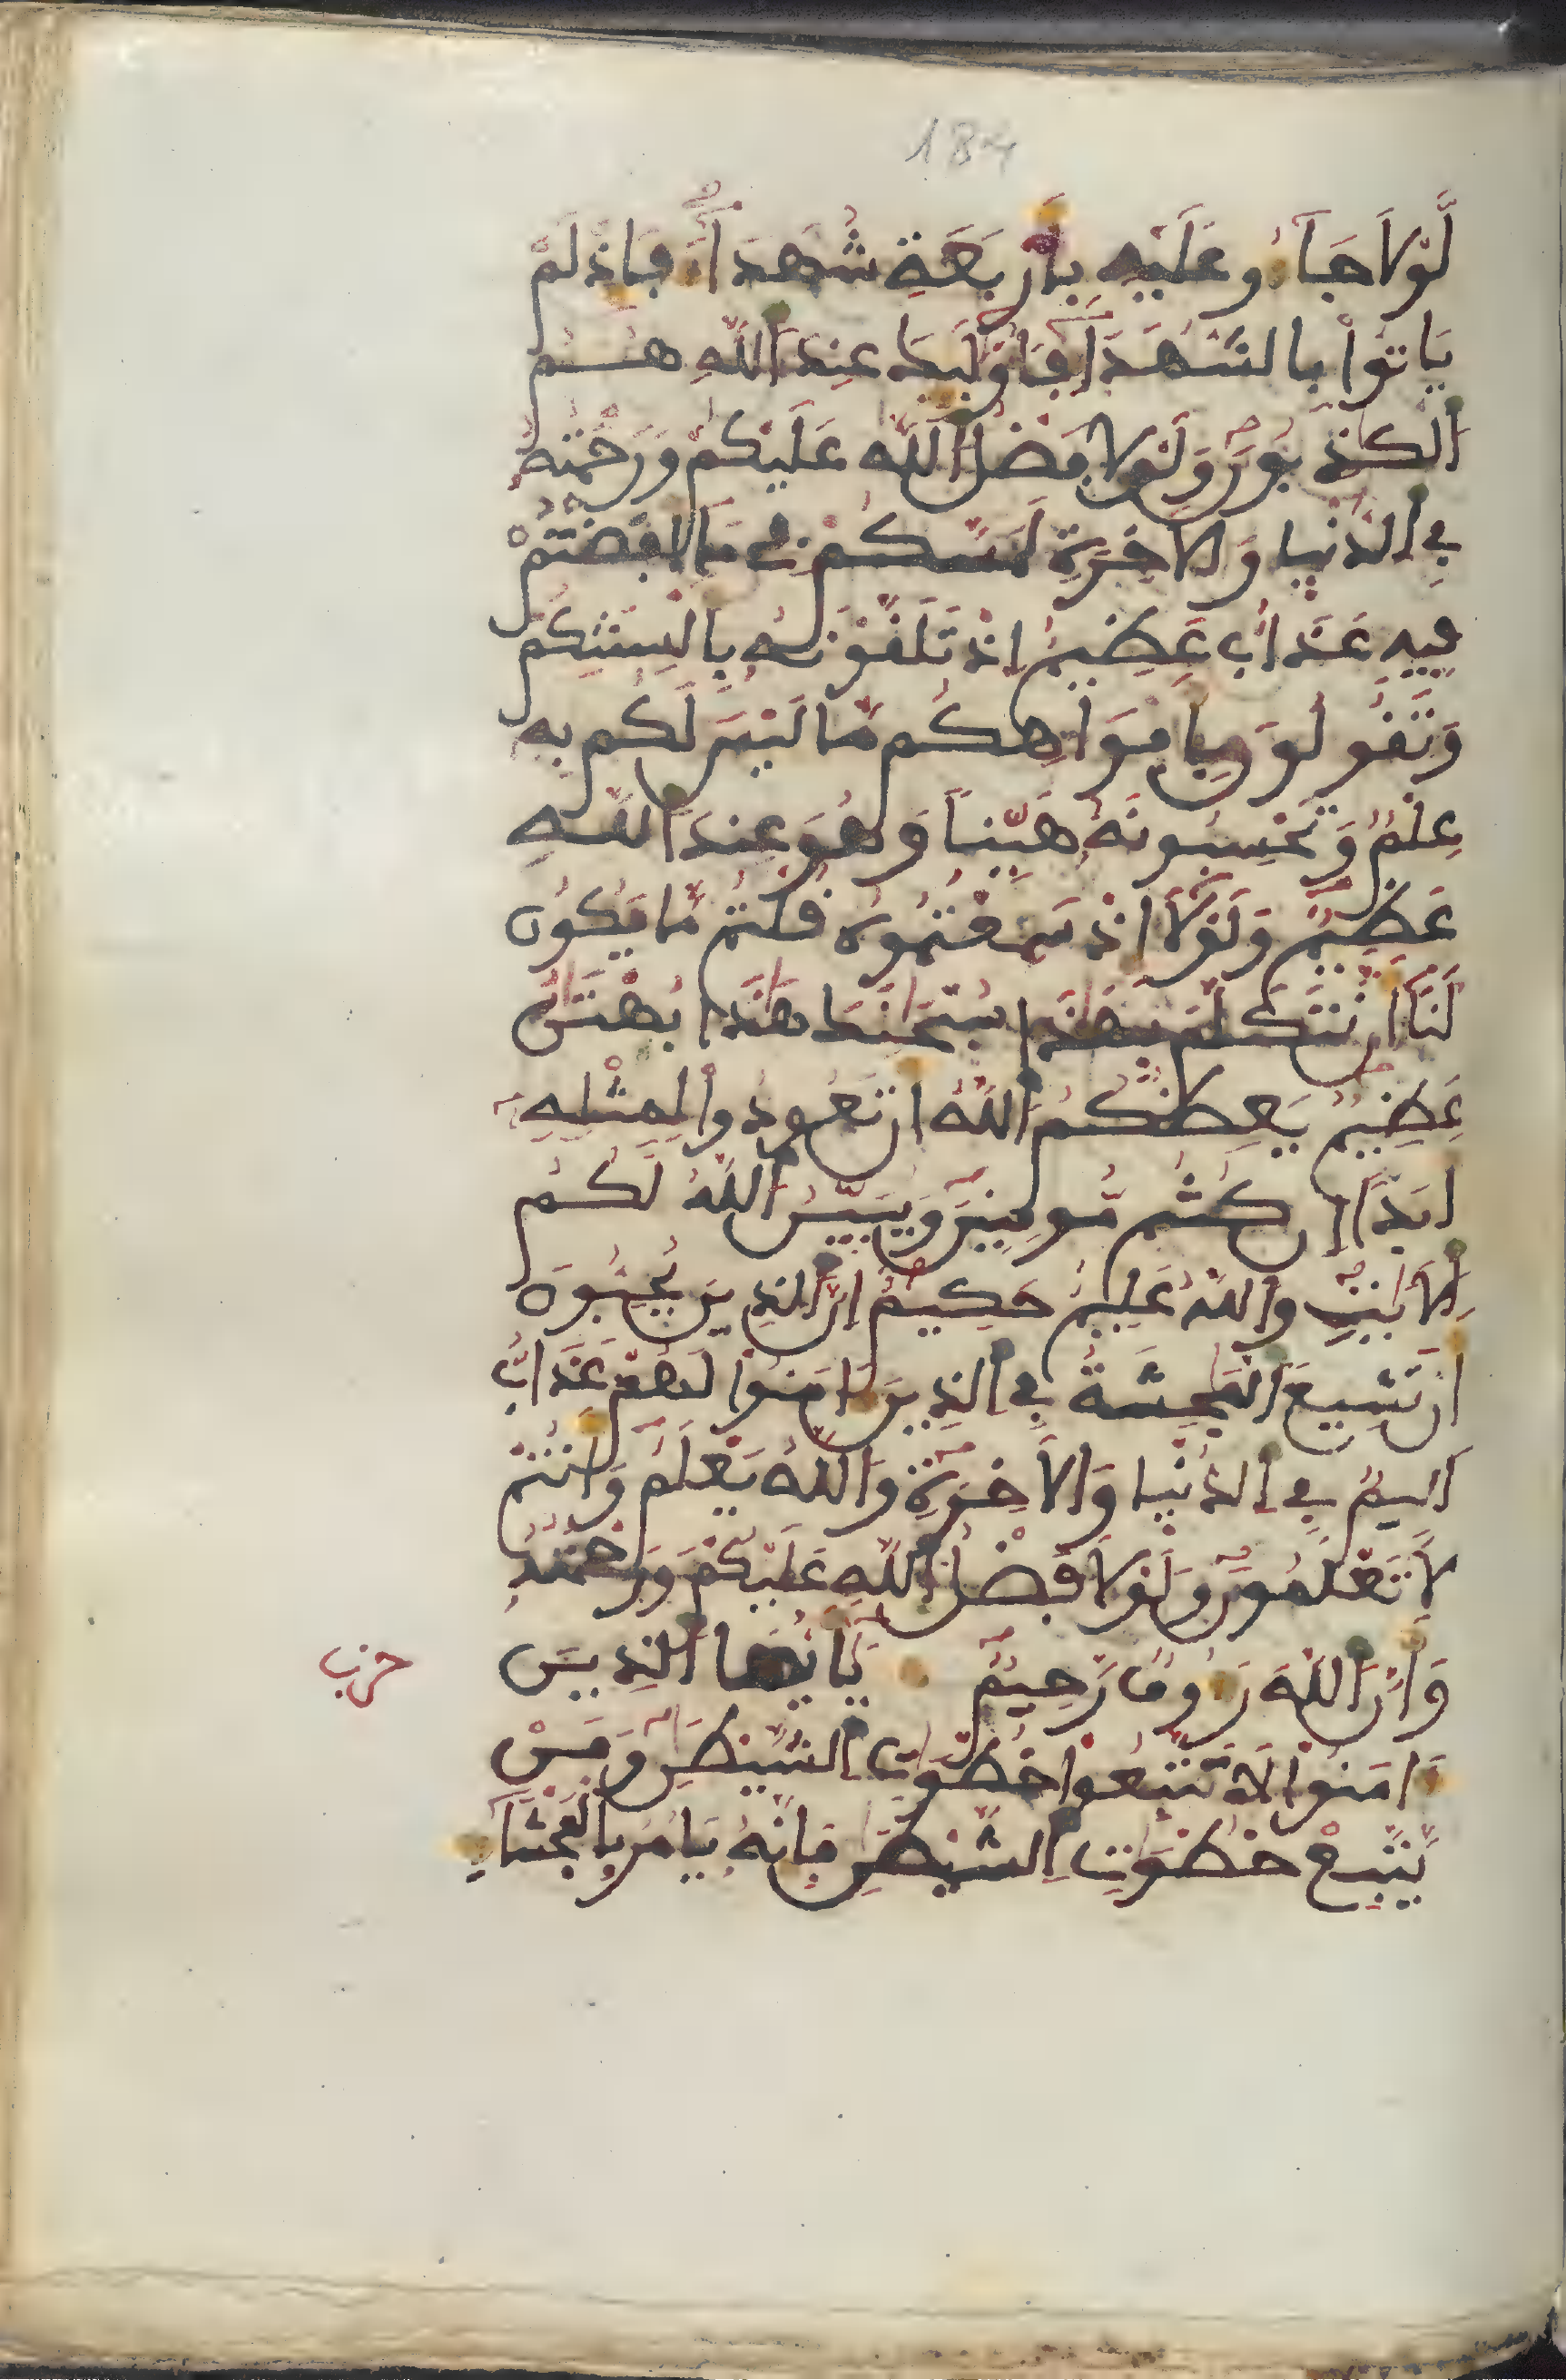 184
لَّوْلَا جَآءُو عَلَيْهِ بِأَرْبَعَةِ شُهَدَآءَ فَإِذْ لَمْ
يَاتُواْ بِالشُّهَدَآءِ فَأُوْلَٰٓئِكَ عِندَ اَللَّهِ هُمُ
اُلْكَٰذِبُونَ وَلَوْلَا فَضْلُ اُللَّهِ عَلَيْكُمْ وَرَحْمَتُهُ
فِے اِلدُّنْيَا وَالَاخِرَةِ لَمَسَّكُمْ فِے مَآ أَفَضْتُمْ
فِيهِ عَذَابٌ عَظِيمٌ اِذْ تَلَقَّوْنَهُ بِأَلْسِنَتِكُمْ
وَتَقُولُونَ بِأَفْوَاهِكُم مَّا لَيْسَ لَكُم بِهِ
عِلْمٌ وَتَحْسِبُونَهُ هَيِّناً وَهُوَ عِندَ اَللَّهِ
عَظِيمٌ وَلَوْلَآ إِذْ سَمِعْتُمُوهُ قُلْتُم مَّا يَكُونُ
لَنَآ أَن نَّتَكَلَّمَ بِهَٰذَا سُبْحَٰنَكَ هَٰذَا بُهْتَٰنٌ
عَظِيمٌ يَعِظُكُمُ اُللَّهُ أَن تَعُودُواْ لِمِثْلِهِ
أَبَداً إِن كُنتُم مُّومِنِينَ وَيُبَيِّنُ اُللَّهُ لَكُمُ
اُلَايَٰتِ وَاللَّهُ عَلِيمٌ حَكِيمٌ اِنَّ اَلذِينَ يُحِبُّونَ
أَن تَشِيعَ اَلْفَٰحِشَةُ فِے اِلذِينَ ءَامَنُواْ لَهُمْ عَذَابٌ
اَلِيمٌ فِے اِلدُّنْيَا وَالَاخِرَةِ وَاللَّهُ يَعْلَمُ وَأَنتُمْ
لَا تَعْلَمُونَ وَلَوْلَا فَضْلُ اُللَّهِ عَلَيْكُمْ وَرَحْمَتُهُ
وَأَنَّ اَللَّهَ رَءُوفٌ رَّحِيمٌ يَٰٓأَيُّهَا اَلذِينَ
حزب
ءَامَنُواْ لَا تَتَّبِعُواْ خُطْوَٰتِ اِلشَّيْطَٰنِ وَمَنْ
يَّتَّبِعْ خُطْوَٰتِ اِلشَّيْطَٰنِ فَإِنَّهُ يَامُرُ بِالْفَحْشَآءِ